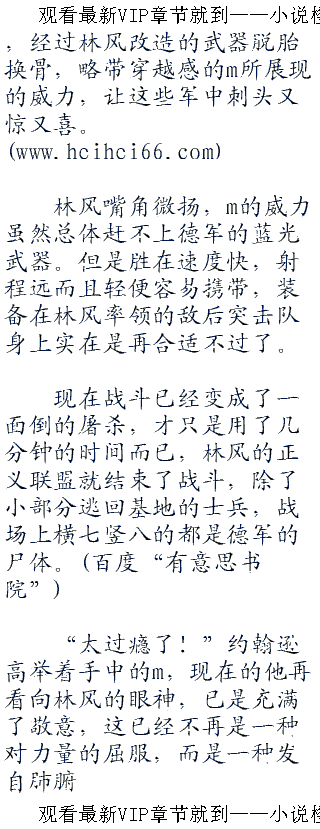 观看最新VIP章节就到——小说检
，经过林风改造的武器脱胎
换骨，略带穿越感的m所展现
的威力，让这些军中刺头又
惊又喜。
(www.hcihci66.com)
林风嘴角微扬，m的威力
虽然总体赶不上德军的蓝光
武器。但是胜在速度快，射
程远而且轻便容易携带，装
备在林风率领的敌后突击队
身上实在是再合适不过了。
现在战斗已经变成了一
面倒的屠杀，才只是用了几
分钟的时间而已，林风的正
义联盟就结束了战斗，除了
小部分逃回基地的士兵，战
场上横七竖八的都是德军的
尸体。(百度“有意思书
院”)
“太过瘾了！”约翰逊
高举着手中的m，现在的他再
看向林风的眼神，已是充满
了敬意，这已经不再是一种
对力量的屈服，而是一种发
自肺腑
观看最新VIP章节就到——小说检